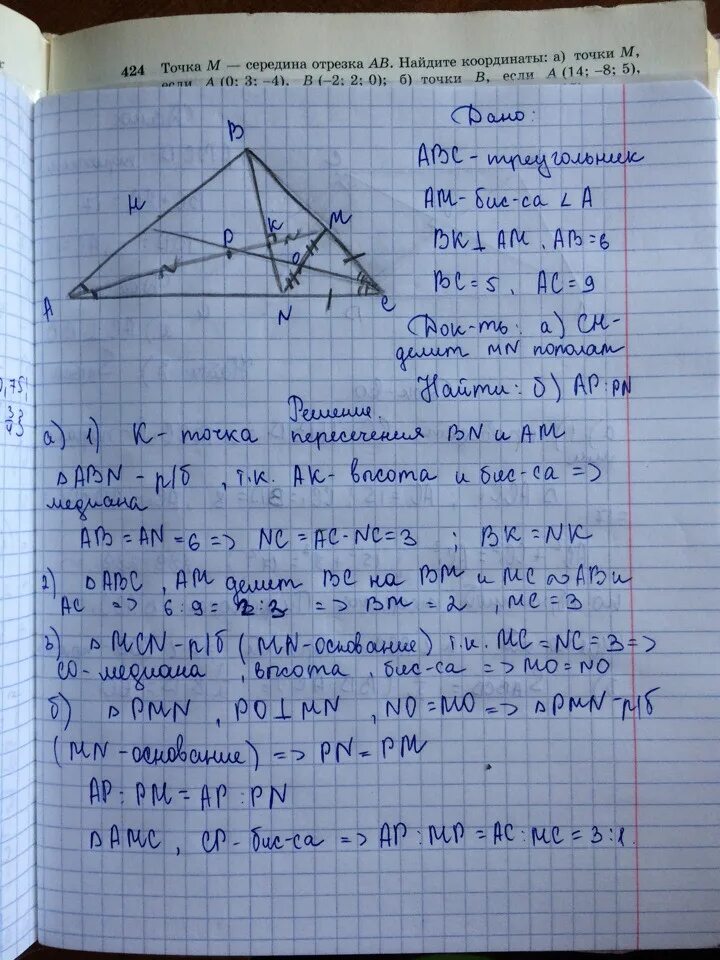 424 Точка M — середина отрезка AB. Найдите координаты: а) точки M,
если A (0; 3; −4), B (−2; 2; 0); б) точки B, если A (14; −8; 5),
Дано:
B
ABC - треугольник
H
K
M
AM - бис-са ∠ A
P
O
BK ⊥ AM, AB = 6
A
N
C
BC = 5, AC = 9
Док-ть: а) CH -
делит MN пополам
Найти: б) AP : PN
Решение.
а) 1) K - точка пересечения BN и AM
△ABN - р/б, т.к. AK - высота и бис-са =>
медиана
AB = AN = 6 => NC = AC - NC = 3 ; BK = NK
2) △ABC, AM делит BC на BM и MC ~ AB и
AC => 6 : 9 = 2 : 3 => BM = 2, MC = 3
3) △MCN - р/б (MN - основание) т.к. MC = NC = 3 =>
CO - медиана, высота, бис-са => MO = NO
б) △PMN, PO ⊥ MN, NO = MO => △PMN - р/б
(MN - основание) => PN = PM
AP : PM = AP : PN
△AMC, CP - бис-са => AP : MP = AC : MC = 3 : 1.